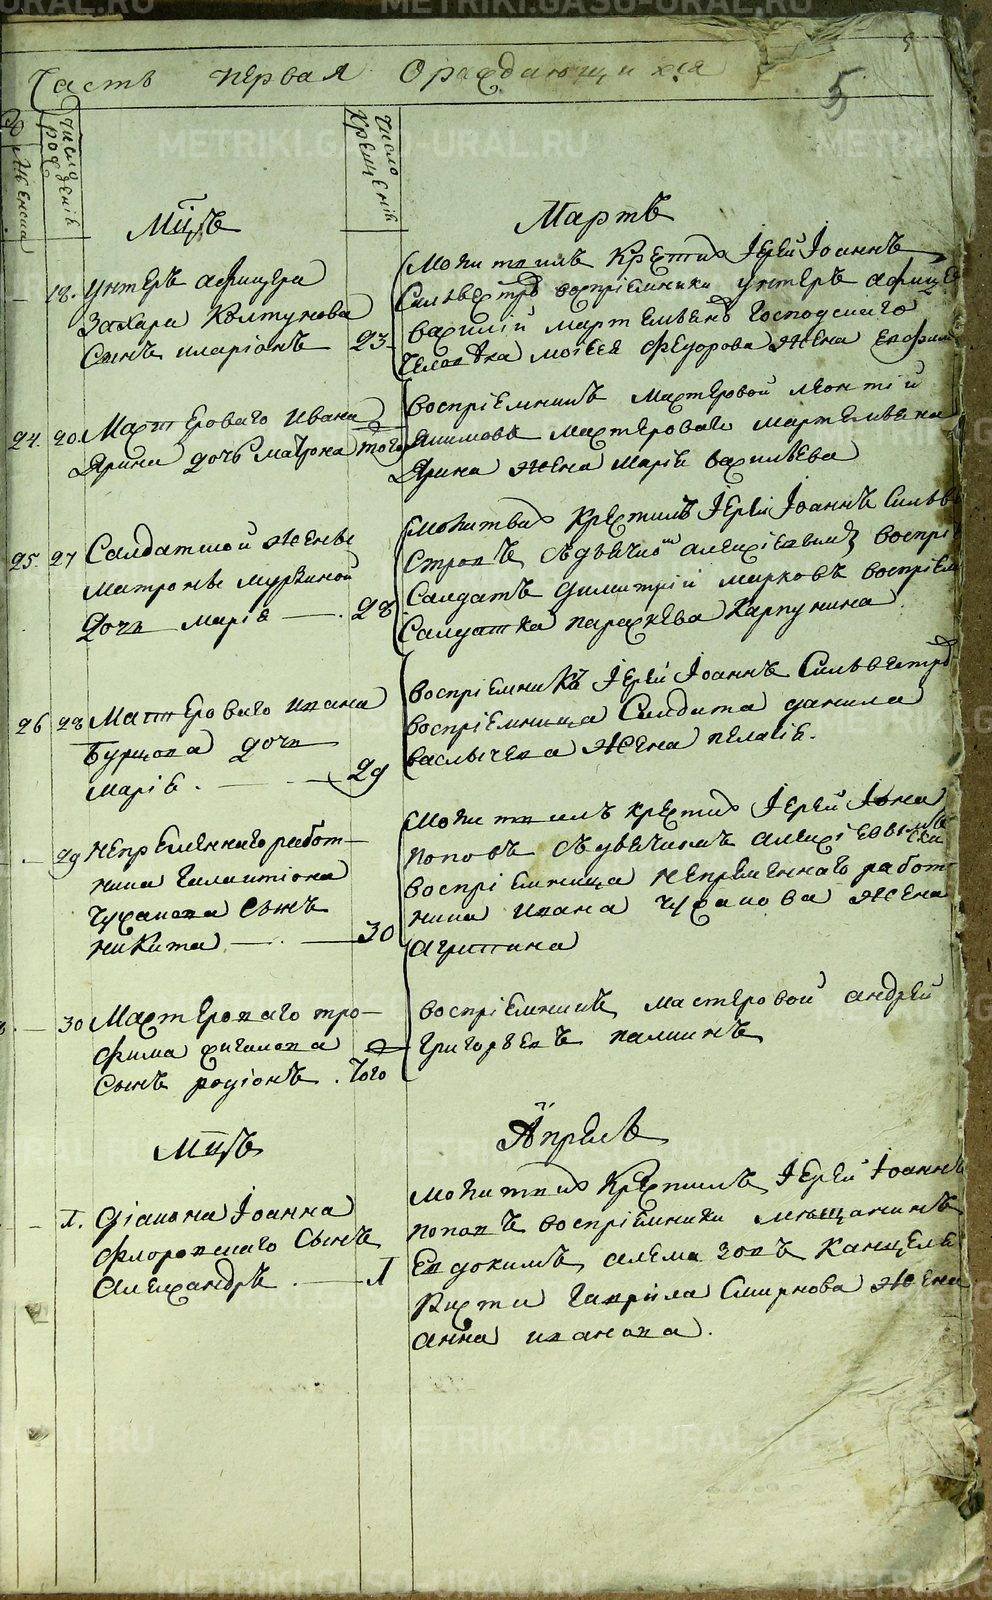 Часть первая О раждающихся
5
число рожденій
число крещенія
Женска
Мцъ Мартъ
18. Унтеръ афицера
Захара Колтунова
Сынъ иларіонъ 23
Молитвилъ Крестил Іерей Іоаннъ
Сильвестров воспріемники унтеръ афице
василій мартемьянов господскаго
человека моісея Федорова жена евфим
24. 20. Мастероваго ивана
Ярина дочь матрона того
воспріемникъ мастеровой леонтій
Акимовъ мастероваго мартемьяна
Ярина жена маріе васильева
25. 27 Салдатской женве
матроне муркиной
дочь маріе 28
Молитвил Крестилъ Іерей Іоаннъ Сильве
стровъ Съ дьячком алексіевым воспріе
Салдатъ димитрій марковъ воспріем
Салдатка параскева Карпунина
26 28 Мастероваго ивана
Бурцова дочь
маріе 29
воспріемникъ Іерей Іоаннъ Сильвестров
воспріемница Салдата данила
васьичева жена пелагіе.
29 непременнаго работ
ника галактіона
чусанова Сынъ
никита 30
Молитвилъ крестил Іерей Іоанн
поповъ Съ дьячкомъ алексіевым
воспріемница непременнаго работ
ника ивана чусанова жена
агрипина
30 Мастероваго тро
фима сигалова
Сынъ родіонъ. Того
воспріемникъ мастеровой андрей
григорьевъ палкинъ
Мцъ Апрель
1. діакона Іоанна
флоровскаго Сынъ
александръ. 1
Молитвил Крестилъ Іерей Іоаннъ
поповъ воспріемники мещанинъ
Евдокимъ алемазовъ Канцеля
риста гаврила Смирнова жена
анна иванова.
METRIKI.GASU-URAL.RU